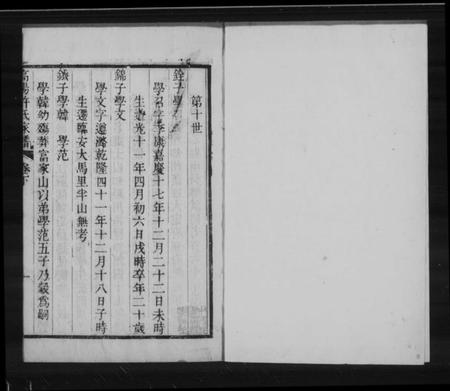 第十世
銓子學
學召字季康嘉慶十七年十二月二十二日未時
生道光十一年四月初六日戌時卒年二十歲
錦子學文
學文字道濰乾隆四十一年十二月十八日子時
生遷臨安大馬里半山無考
鐖子學韓 學范
學韓幼殤葬富家山以弟學范五子乃穀爲嗣
高陽許氏家譜 卷下